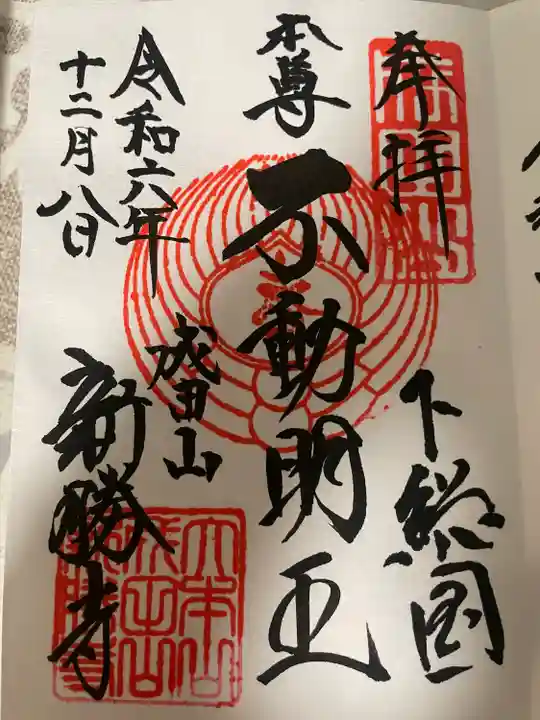 奉拝
下総国
本尊
不動明王
成田山
新勝寺
令和六年
十二月八日
大本山
成田山
新勝寺